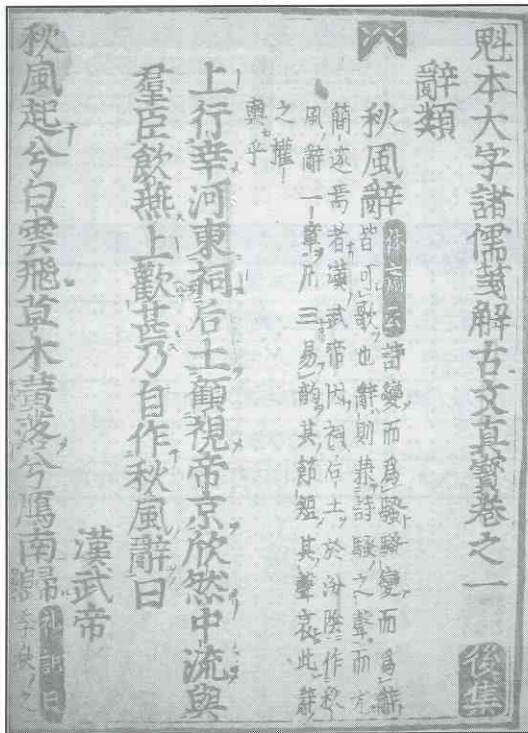 魁本大字諸儒箋解古文真寶卷之一 後集
辭類
秋風辭 休齋云 詩變而爲騷騷變而爲辭
皆可歌也辭則兼詩騷之聲而尤
簡邃焉者漢武帝因祠后土於汾陰作秋
風辭一章凡三易韵其節短其聲哀此辭
之權
輿乎
上行幸河東祠后土顧視帝京欣然中流與
羣臣飲燕上歡甚乃自作秋風辭曰
漢武帝
秋風起兮白雲飛草木黃落兮鴈南歸 礼記曰
季秋之